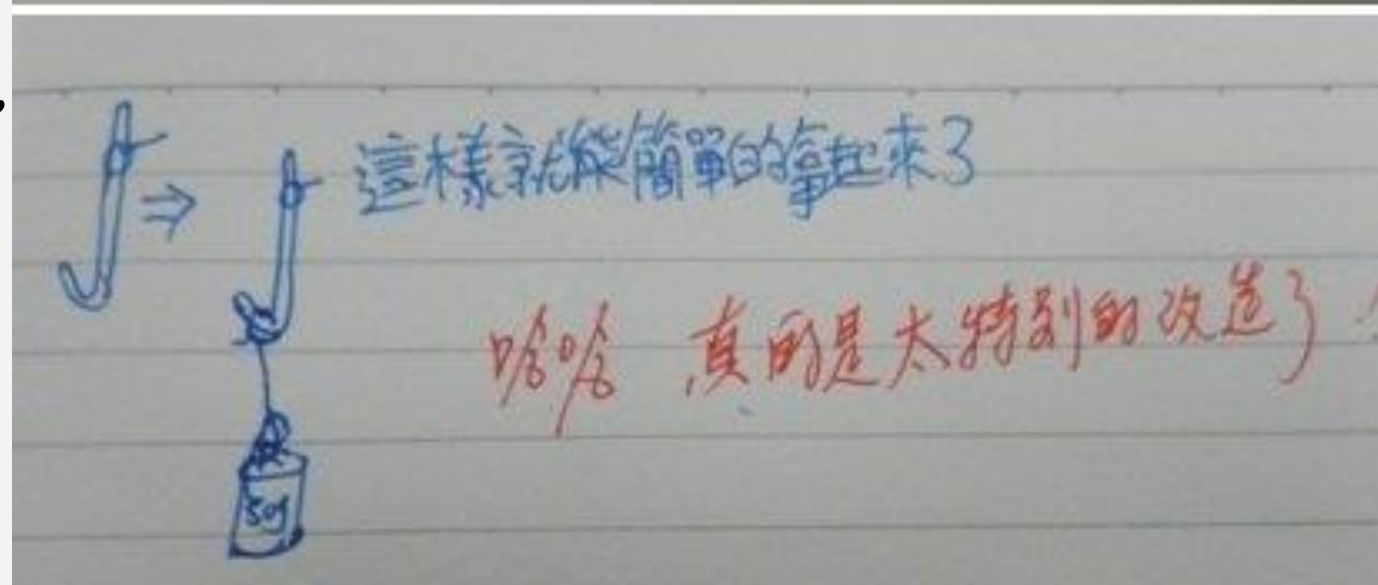 這樣就能簡單的拿起來了
哈哈 真的是太特別的改造了!
50g